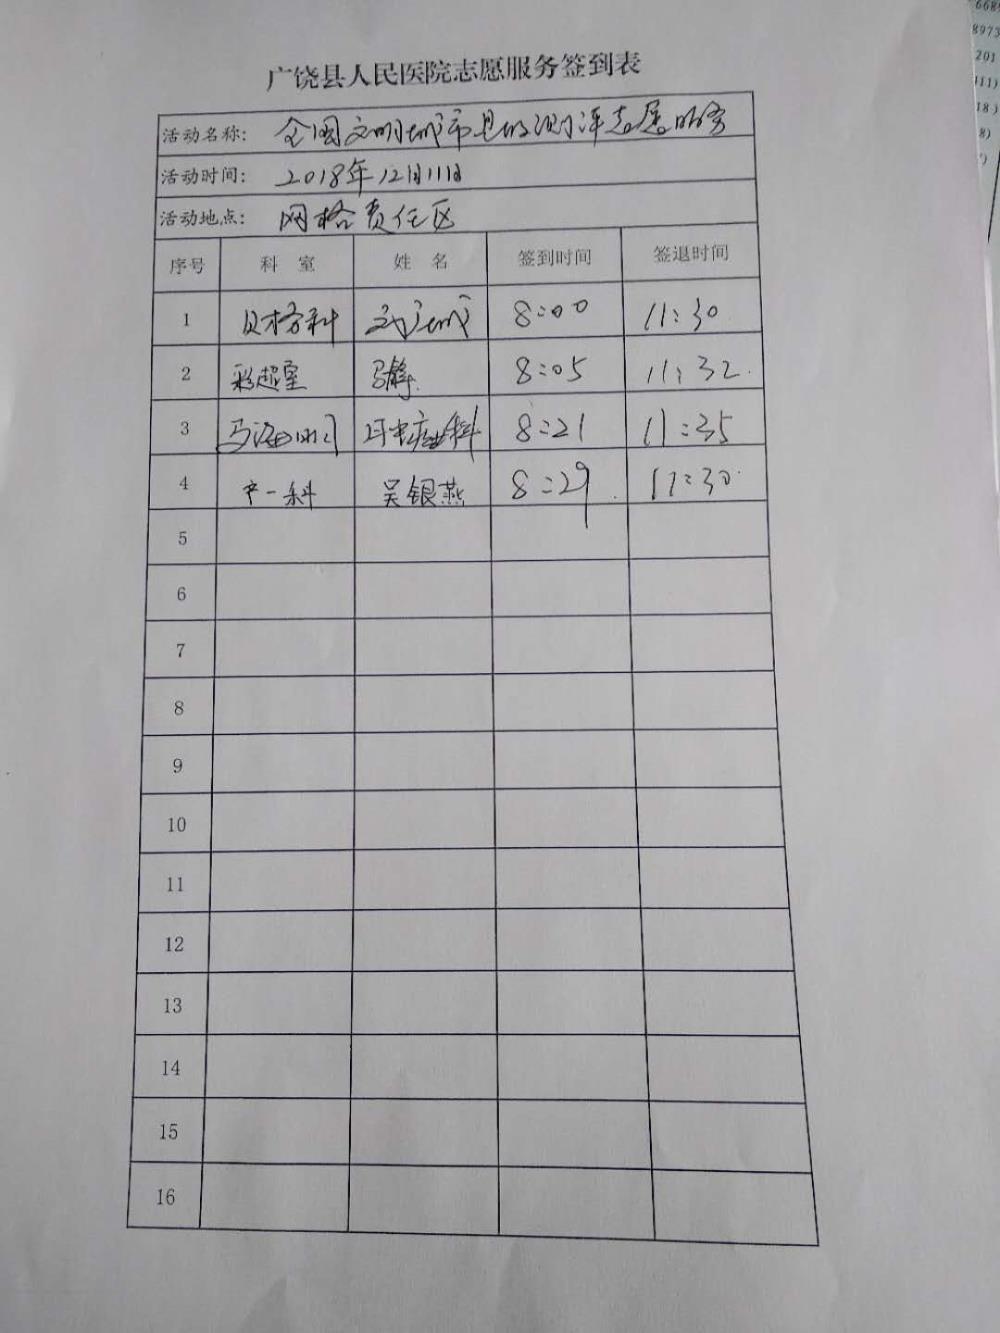 广饶县人民医院志愿服务签到表
活动名称: 全国文明城市县级测评志愿服务
活动时间: 2018年12月11日
活动地点: 网格责任区
序号 科 室 姓 名 签到时间 签退时间
1 8:00 11:30
2 彩超室 马静 8:05 11:32
3 马海 8:21 11:35
4 产一科 吴银燕 8:29 11:30
5
6
7
8
9
10
11
12
13
14
15
16
668
8973
201
11)
18)
8)